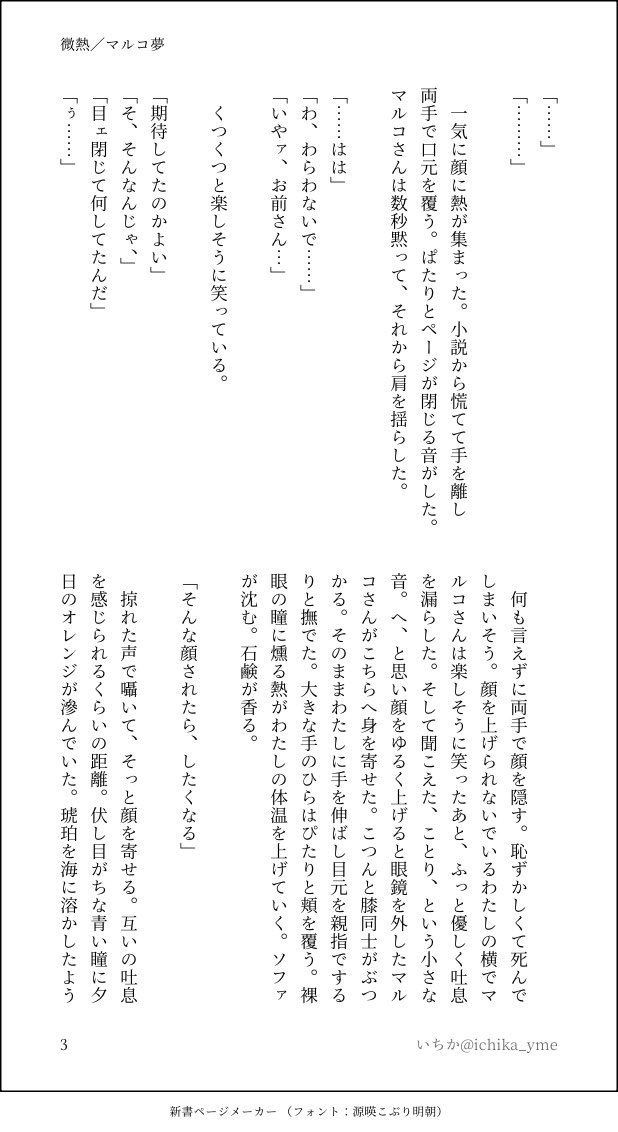 微熱／マルコ夢
「……」
「………」
一気に顔に熱が集まった。小説から慌てて手を離し
両手で口元を覆う。ぱたりとページが閉じる音がした。
マルコさんは数秒黙って、それから肩を揺らした。
「……はは」
「わ、わらわないで……」
「いやァ、お前さん…」
くつくつと楽しそうに笑っている。
「期待してたのかよい」
「そ、そんなんじゃ、」
「目ェ閉じて何してたんだ」
「ぅ……」
何も言えずに両手で顔を隠す。恥ずかしくて死んで
しまいそう。顔を上げられないでいるわたしの横でマ
ルコさんは楽しそうに笑ったあと、ふっと優しく吐息
を漏らした。そして聞こえた、ことり、という小さな
音。へ、と思い顔をゆるく上げると眼鏡を外したマル
コさんがこちらへ身を寄せた。こつんと膝同士がぶつ
かる。そのままわたしに手を伸ばし目元を親指でする
りと撫でた。大きな手のひらはぴたりと頬を覆う。裸
眼の瞳に燻る熱がわたしの体温を上げていく。ソファ
が沈む。石鹸が香る。
「そんな顔されたら、したくなる」
掠れた声で囁いて、そっと顔を寄せる。互いの吐息
を感じられるくらいの距離。伏し目がちな青い瞳に夕
日のオレンジが滲んでいた。琥珀を海に溶かしたよう
3
いちか@ichika_yme
新書ページメーカー（フォント：源暎こぶり明朝）